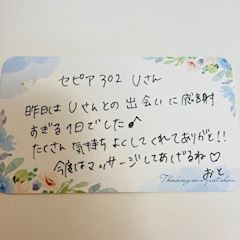 セピア302 Uさん
昨日はUさんとの出会いに感謝
すぎる1日でした♪
たくさん気持ちよくしてくれてありがと!!
今度はマッサージしてあげるね♡
おと
Thinking